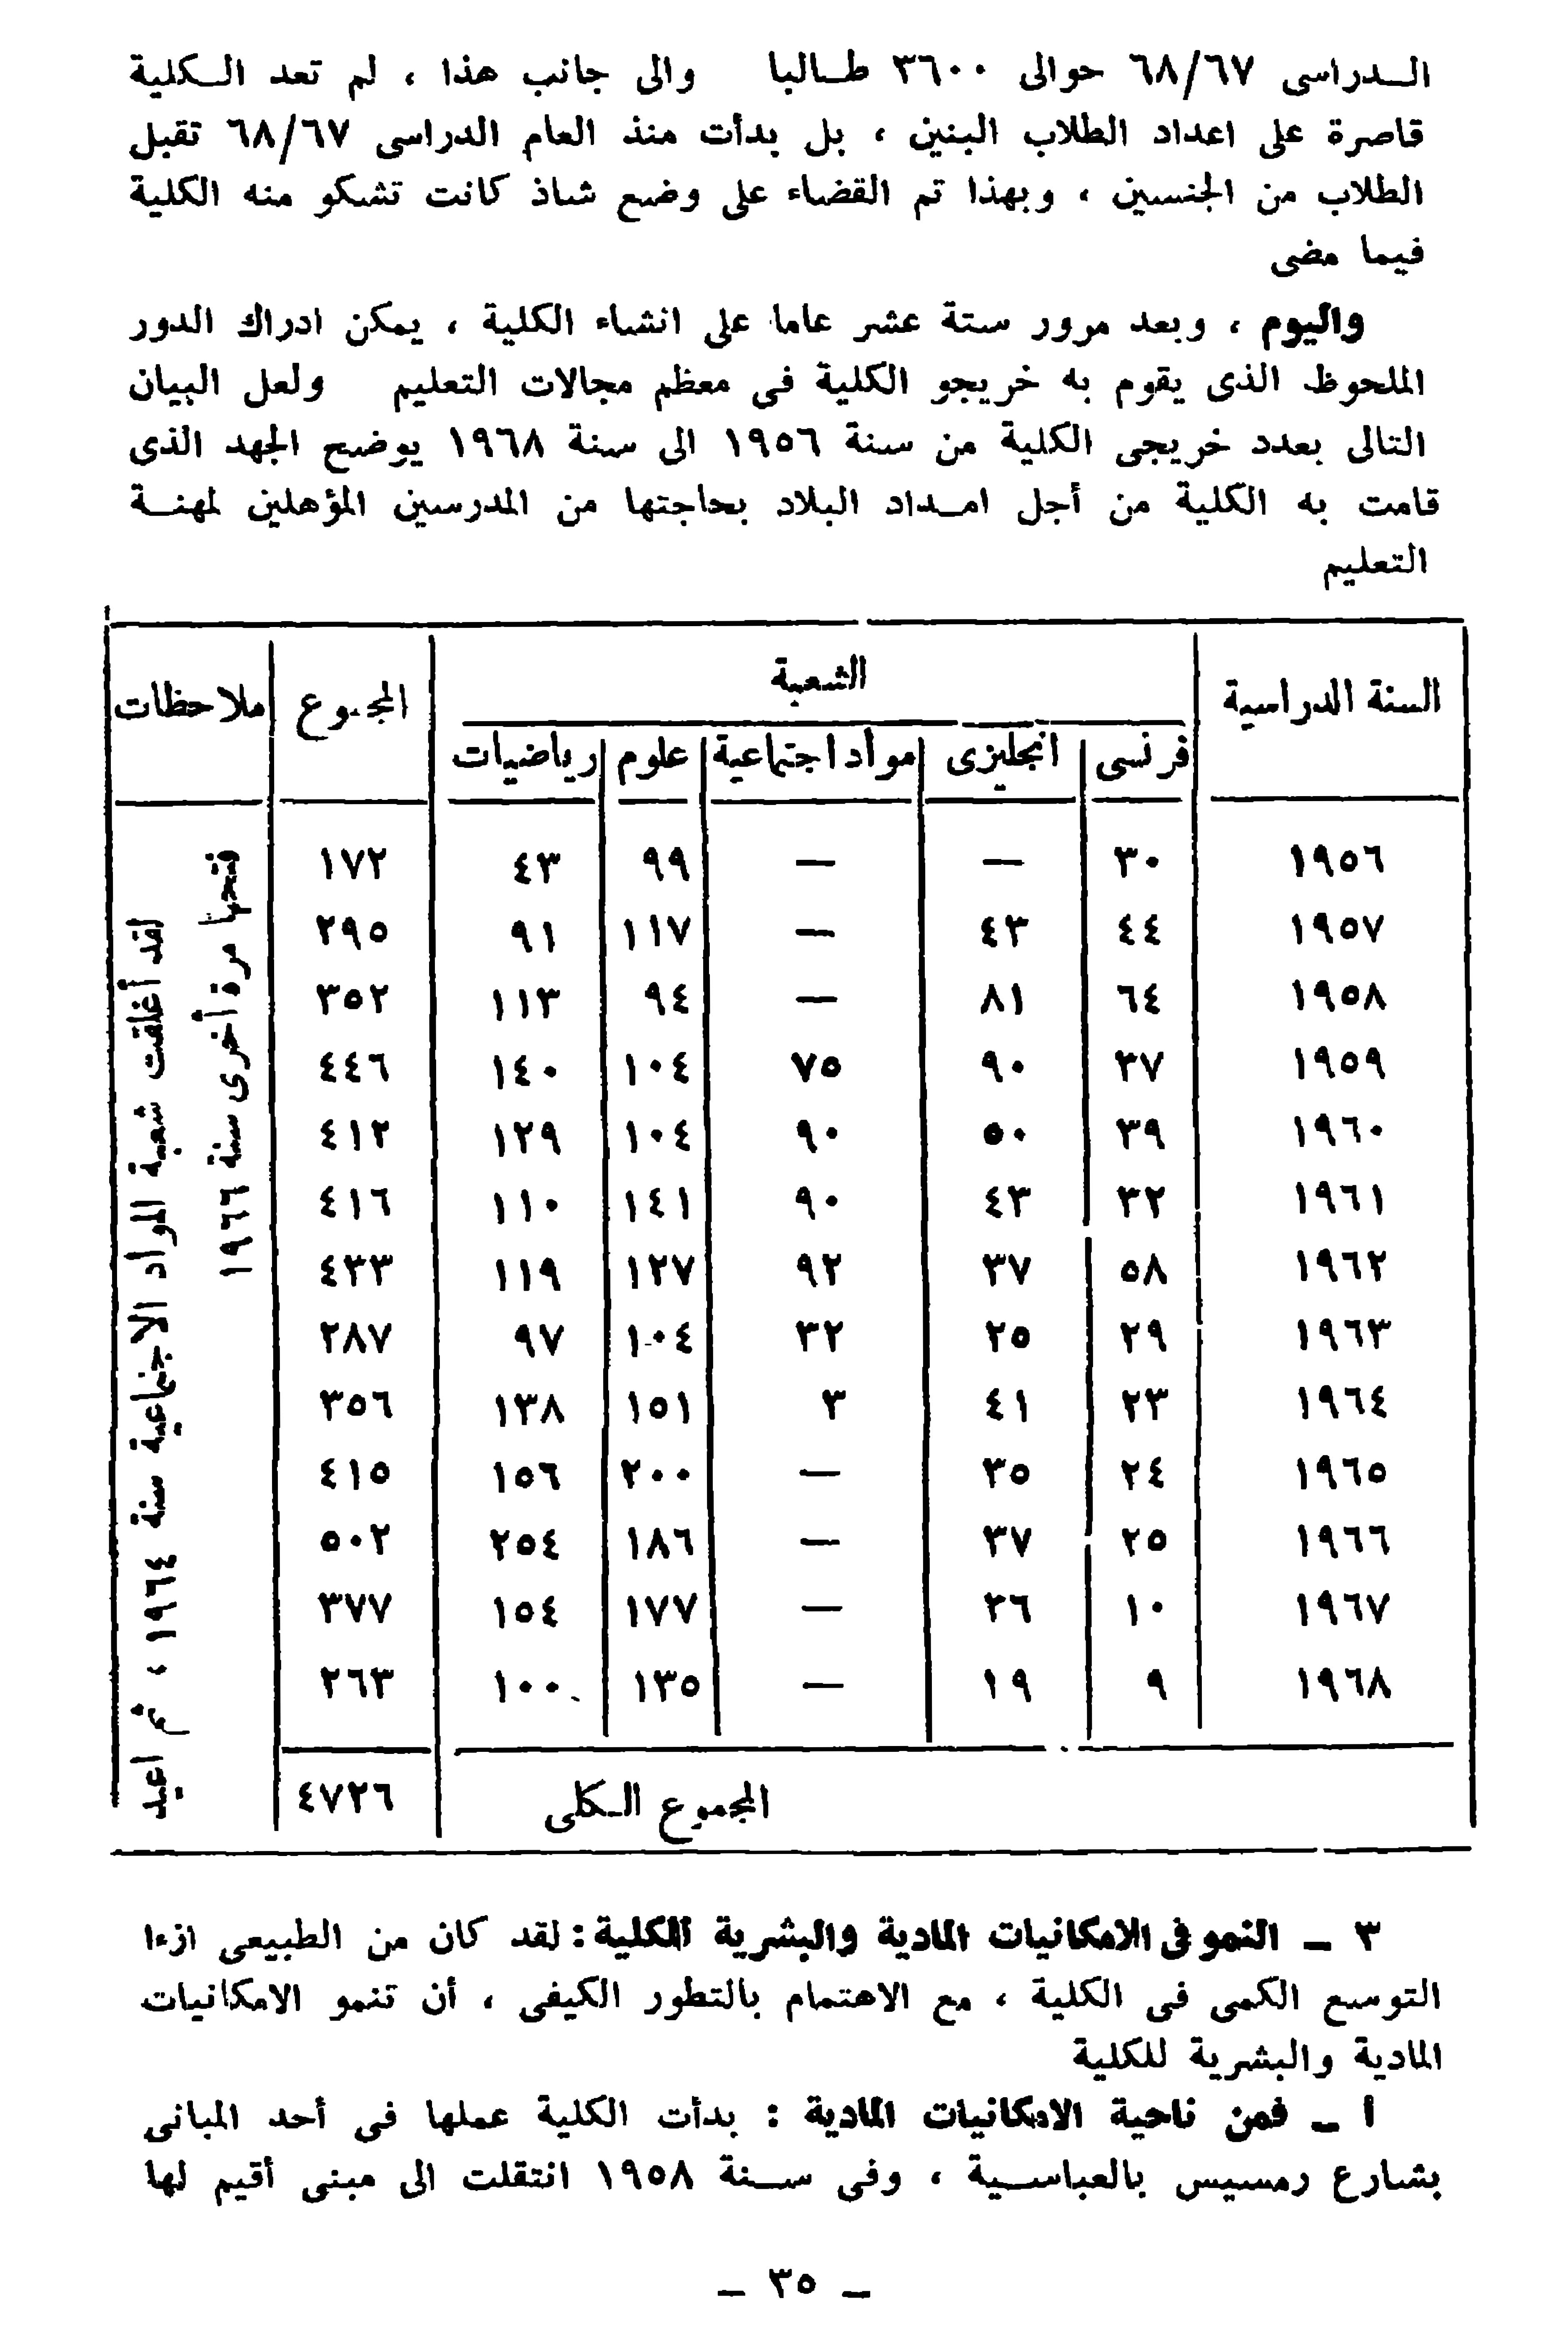 الـدراسى ٦٨/٦٧ حوالى ٣٦٠٠ طـالبا والى جانب هذا ، لم تعد الـكلية
قاصرة على اعداد الطلاب البنين ، بل بدأت منذ العام الدراسى ٦٨/٦٧ تقبل
الطلاب من الجنسين ، وبهذا تم القضاء على وضع شاذ كانت تشكو منه الكلية
فيما مضى
واليوم ، وبعد مرور ستة عشر عاما على انشاء الكلية ، يمكن ادراك الدور
الملحوظ الذى يقوم به خريجو الكلية فى معظم مجالات التعليم ولعل البيان
التالى بعدد خريجى الكلية من سنة ١٩٥٦ الى سنة ١٩٦٨ يوضح الجهد الذى
قامت به الكلية من أجل امـداد البلاد بحاجتها من المدرسين المؤهلين لمهنـة
التعليم
السنة الدراسية الشعبة المجموع ملاحظات
فرنسى انجليزى مواد اجتماعية علوم رياضيات
١٩٥٦ ٣٠ — — ٩٩ ٤٣ ١٧٢
١٩٥٧ ٤٤ ٤٣ — ١١٧ ٩١ ٢٩٥
١٩٥٨ ٦٤ ٨١ — ٩٤ ١١٣ ٣٥٢
١٩٥٩ ٣٧ ٩٠ ٧٥ ١٠٤ ١٤٠ ٤٤٦
١٩٦٠ ٣٩ ٥٠ ٩٠ ١٠٤ ١٢٩ ٤١٢
١٩٦١ ٣٢ ٤٣ ٩٠ ١٤١ ١١٠ ٤١٦
١٩٦٢ ٥٨ ٣٧ ٩٢ ١٢٧ ١١٩ ٤٣٣
١٩٦٣ ٢٩ ٢٥ ٣٢ ١٠٤ ٩٧ ٢٨٧
١٩٦٤ ٢٣ ٤١ ٣ ١٥١ ١٣٨ ٣٥٦
١٩٦٥ ٢٤ ٣٥ — ٢٠٠ ١٥٦ ٤١٥
١٩٦٦ ٢٥ ٣٧ — ١٨٦ ٢٥٤ ٥٠٢
١٩٦٧ ١٠ ٣٦ — ١٧٧ ١٥٤ ٣٧٧
١٩٦٨ ٩ ١٩ — ١٣٥ ١٠٠ ٢٦٣
المجموع الـكلى ٤٧٢٦
لقد أغلقت شعبة المواد الاجتماعية سنة ١٩٦٤ ، ثم اعيد
فتحها مرة أخرى سنة ١٩٦٦
٣ ـ النمو فى الامكانيات المادية والبشرية الكلية : لقد كان من الطبيعى ازءا
التوسع الكمى فى الكلية ، مع الاهتمام بالتطور الكيفى ، أن تنمو الامكانيات
المادية والبشرية للكلية
أ ـ فمن ناحية الامكانيات المادية : بدأت الكلية عملها فى أحد المبانى
بشارع رمسيس بالعباسـية ، وفى سـنة ١٩٥٨ انتقلت الى مبنى أقيم لها
ـ ٣٥ ـ